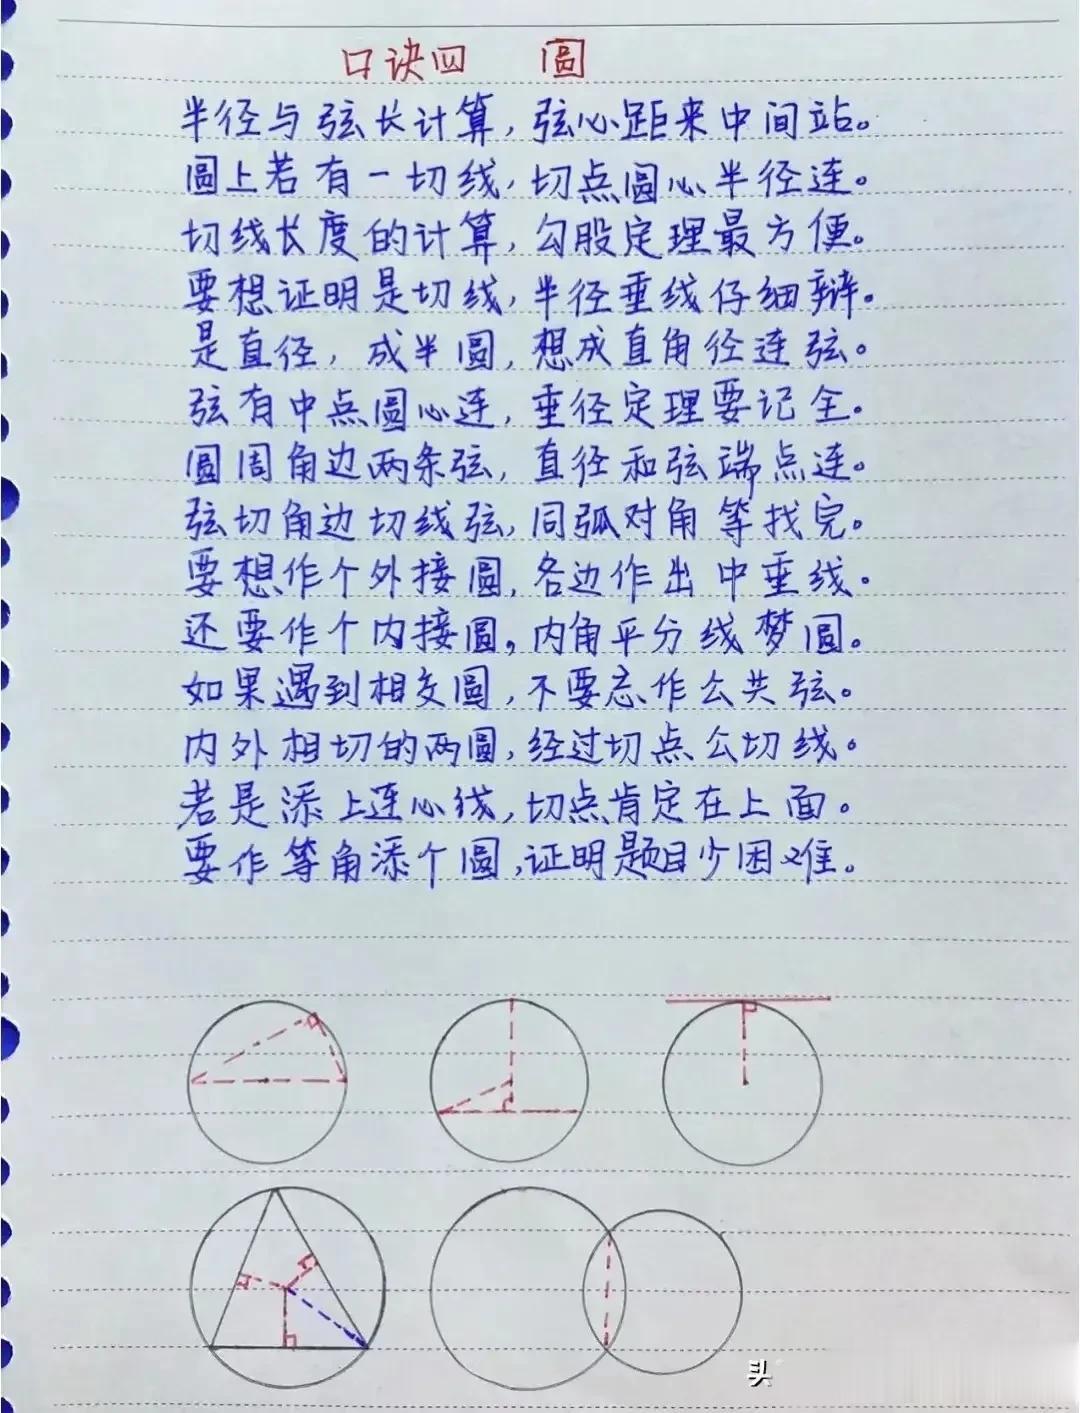 口诀四 圆
半径与弦长计算,弦心距来中间站。
圆上若有一切线,切点圆心半径连。
切线长度的计算,勾股定理最方便。
要想证明是切线,半径垂线仔细辩。
是直径,成半圆,想成直角径连弦。
弦有中点圆心连,垂径定理要记全。
圆周角边两条弦,直径和弦端点连。
弦切角边切线弦,同弧对角等找完。
要想作个外接圆,各边作出中垂线。
还要作个内接圆,内角平分线梦圆。
如果遇到相交圆,不要忘作公共弦。
内外相切的两圆,经过切点公切线。
若是添上连心线,切点肯定在上面。
要作等角添个圆,证明题目少困难。
头